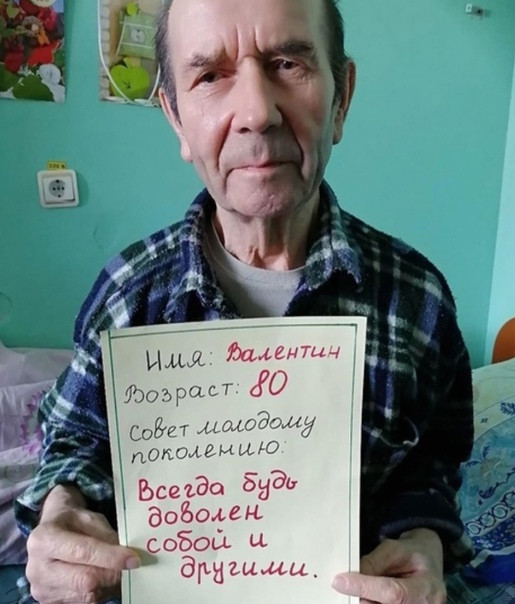 Имя: Валентин
Возраст: 80
Совет молодому
поколению:
Всегда будь
доволен
собой и
другими.